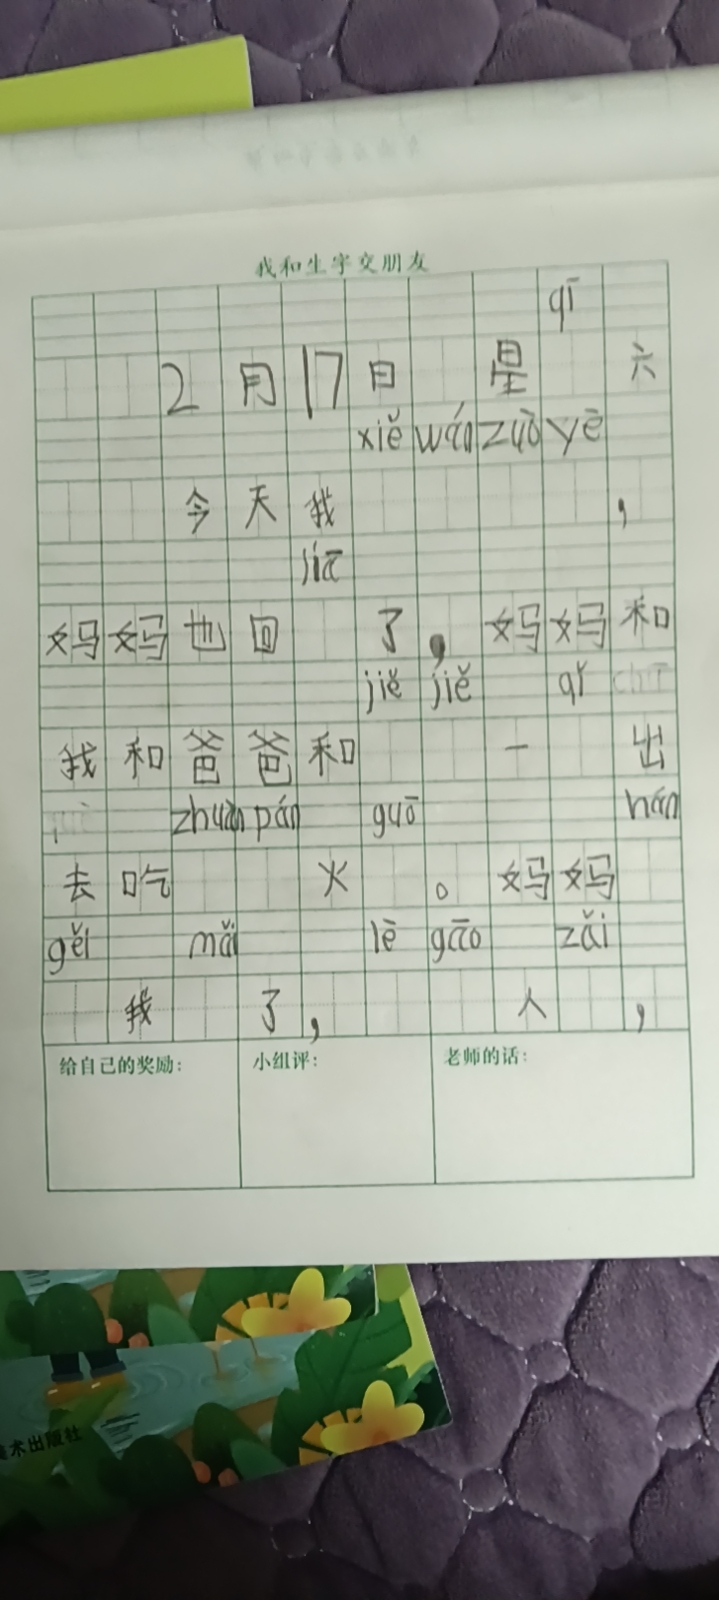 我和生字交朋友
qī
2月17日 星 六
xiě wán zuò yè
今天我 ，
jiā
妈妈也回 了，妈妈和
jiě jiě qǐ
我和爸爸和 一 出
zhuàn pán guō hán
去吃 火 。妈妈
gěi mǎi lē gāo zǎi
我 了， 人 ，
给自己的奖励：
小组评：
老师的话：
美术出版社